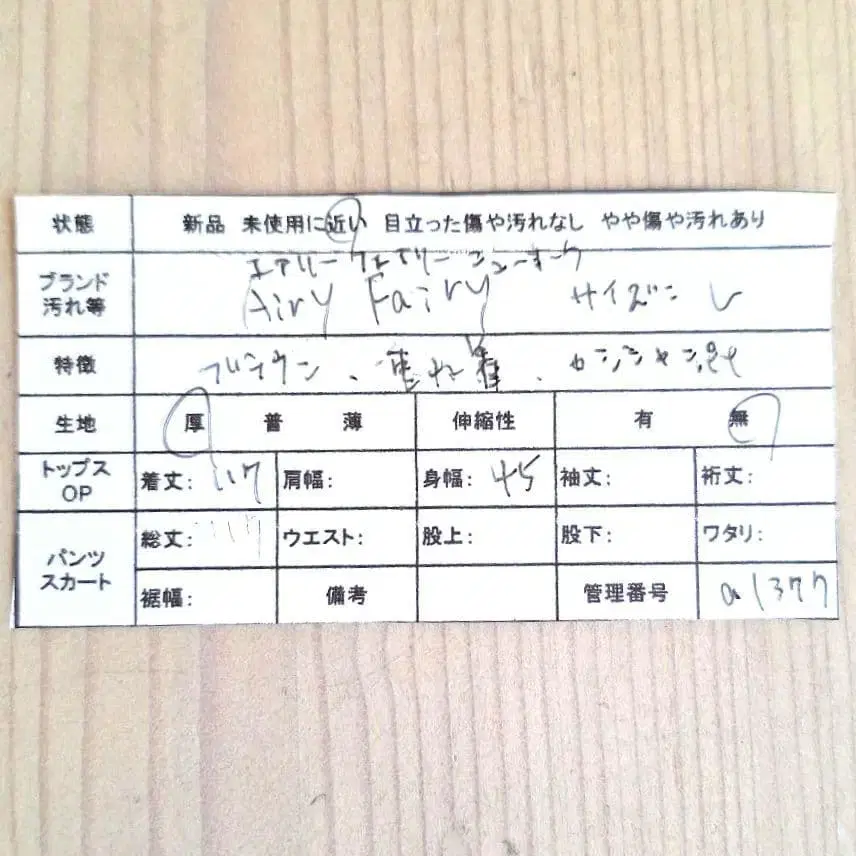 状態 新品 未使用に近い 目立った傷や汚れなし やや傷や汚れあり
エアリーフェアリーニューヨーク
ブランド 汚れ等 Airy Fairy サイズ: L
特徴 ブラウン、重ね着、
生地 厚 普 薄 伸縮性 有 無
トップス OP 着丈: 117 肩幅: 身幅: 45 袖丈: 裄丈:
パンツ スカート 総丈: 117 ウエスト: 股上: 股下: ワタリ:
裾幅: 備考 管理番号 a1377